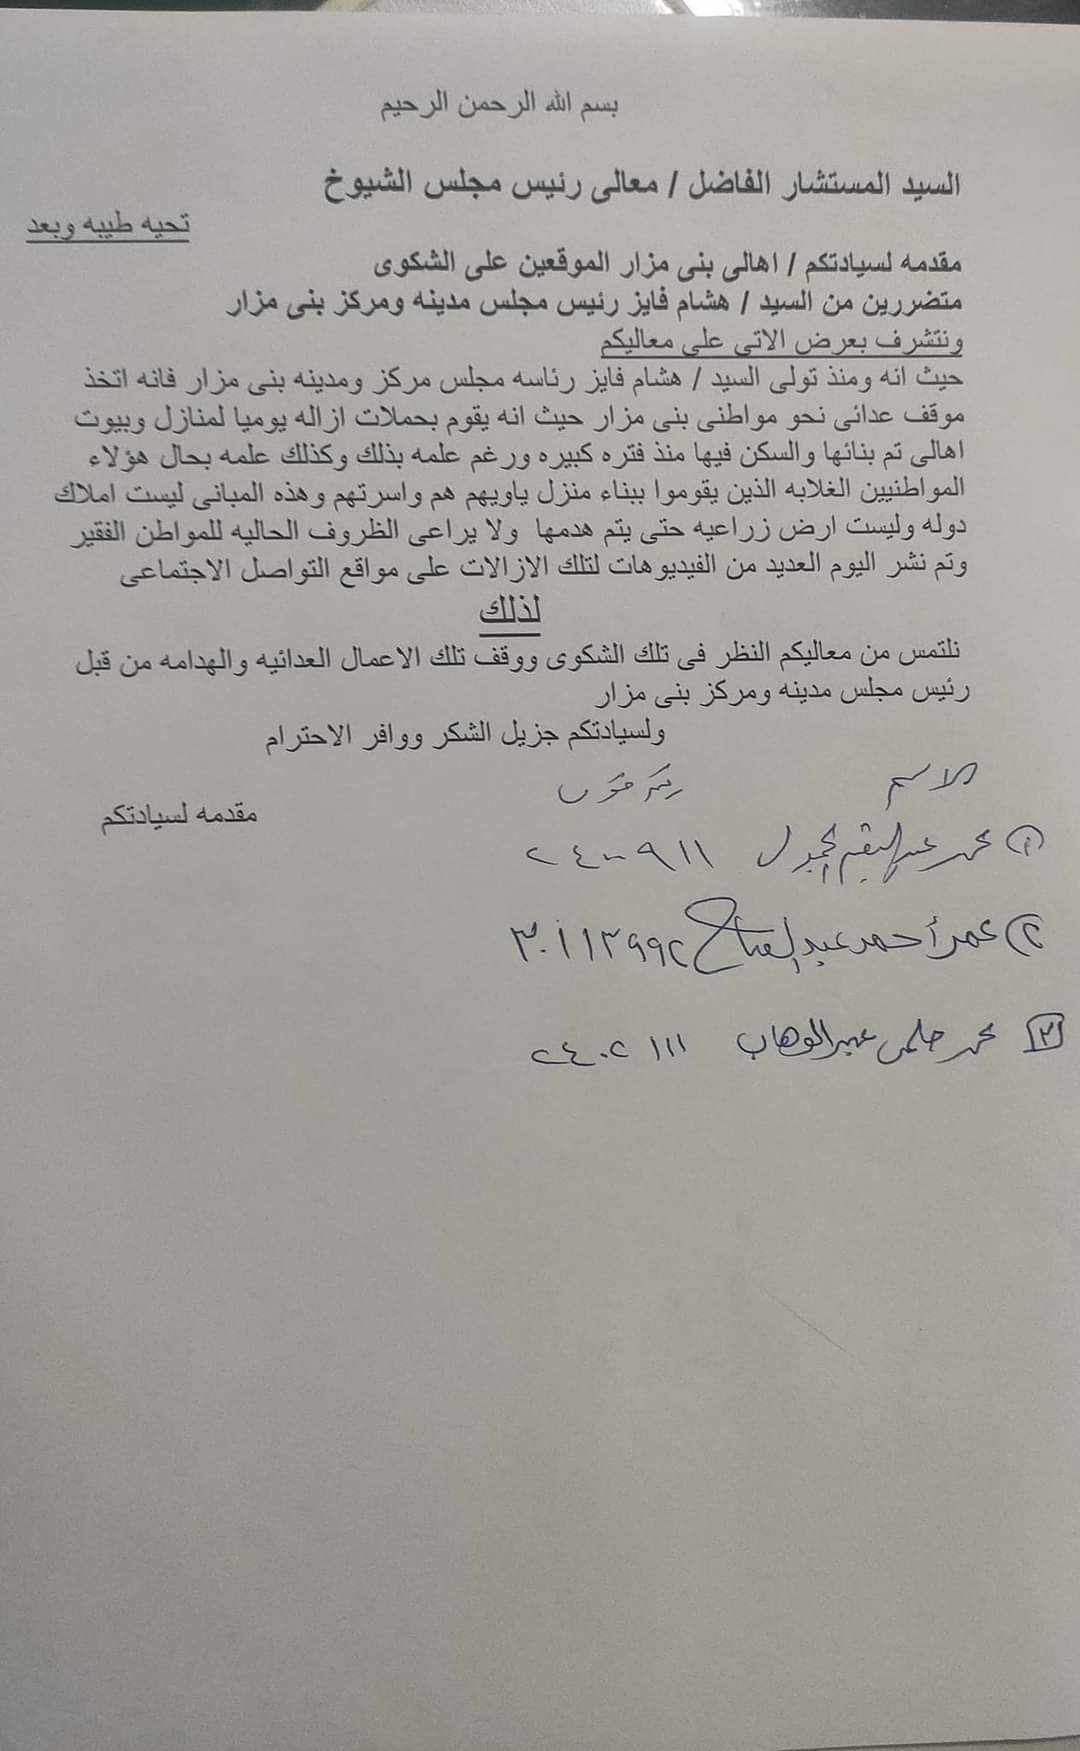 بسم الله الرحمن الرحيم
السيد المستشار الفاضل / معالى رئيس مجلس الشيوخ
تحيه طيبه وبعد
مقدمه لسيادتكم / اهالى بنى مزار الموقعين على الشكوى
متضررين من السيد / هشام فايز رئيس مجلس مدينه ومركز بنى مزار
ونتشرف بعرض الاتى على معاليكم
حيث انه ومنذ تولى السيد / هشام فايز رئاسه مجلس مركز ومدينه بنى مزار فانه اتخذ
موقف عدائى نحو مواطنى بنى مزار حيث انه يقوم بحملات ازاله يوميا لمنازل وبيوت
اهالى تم بنائها والسكن فيها منذ فتره كبيره ورغم علمه بذلك وكذلك علمه بحال هؤلاء
المواطنيين الغلابه الذين يقوموا ببناء منزل ياويهم هم واسرتهم وهذه المبانى ليست املاك
دوله وليست ارض زراعيه حتى يتم هدمها ولا يراعى الظروف الحاليه للمواطن الفقير
وتم نشر اليوم العديد من الفيديوهات لتلك الازالات على مواقع التواصل الاجتماعى
لذلك
نلتمس من معاليكم النظر فى تلك الشكوى ووقف تلك الاعمال العدائيه والهدامه من قبل
رئيس مجلس مدينه ومركز بنى مزار
ولسيادتكم جزيل الشكر ووافر الاحترام
الاسم
مقدمه لسيادتكم
١ محمد
٢ عمر أحمد عبد الفتاح
٣ محمد حلمى عبد الوهاب ٢٤٠٢١١١